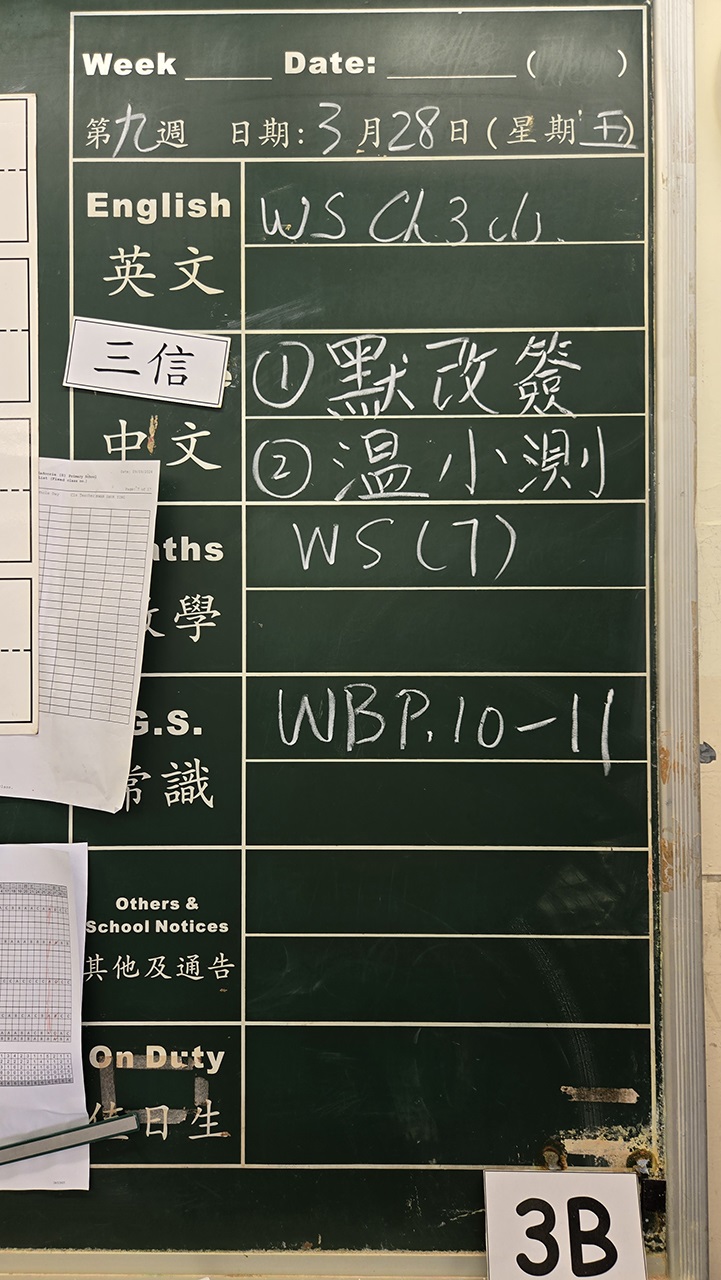 Week ____ Date: ______ ( )
第九週 日期: 3月28日(星期五)
English
WS Ch 3
英文
三信
①默改簽
中文
②温小測
ths
WS(7)
學
G.S.
WBP.10-11
常識
Others &
School Notices
其他及通告
On Duty
值日生
3B